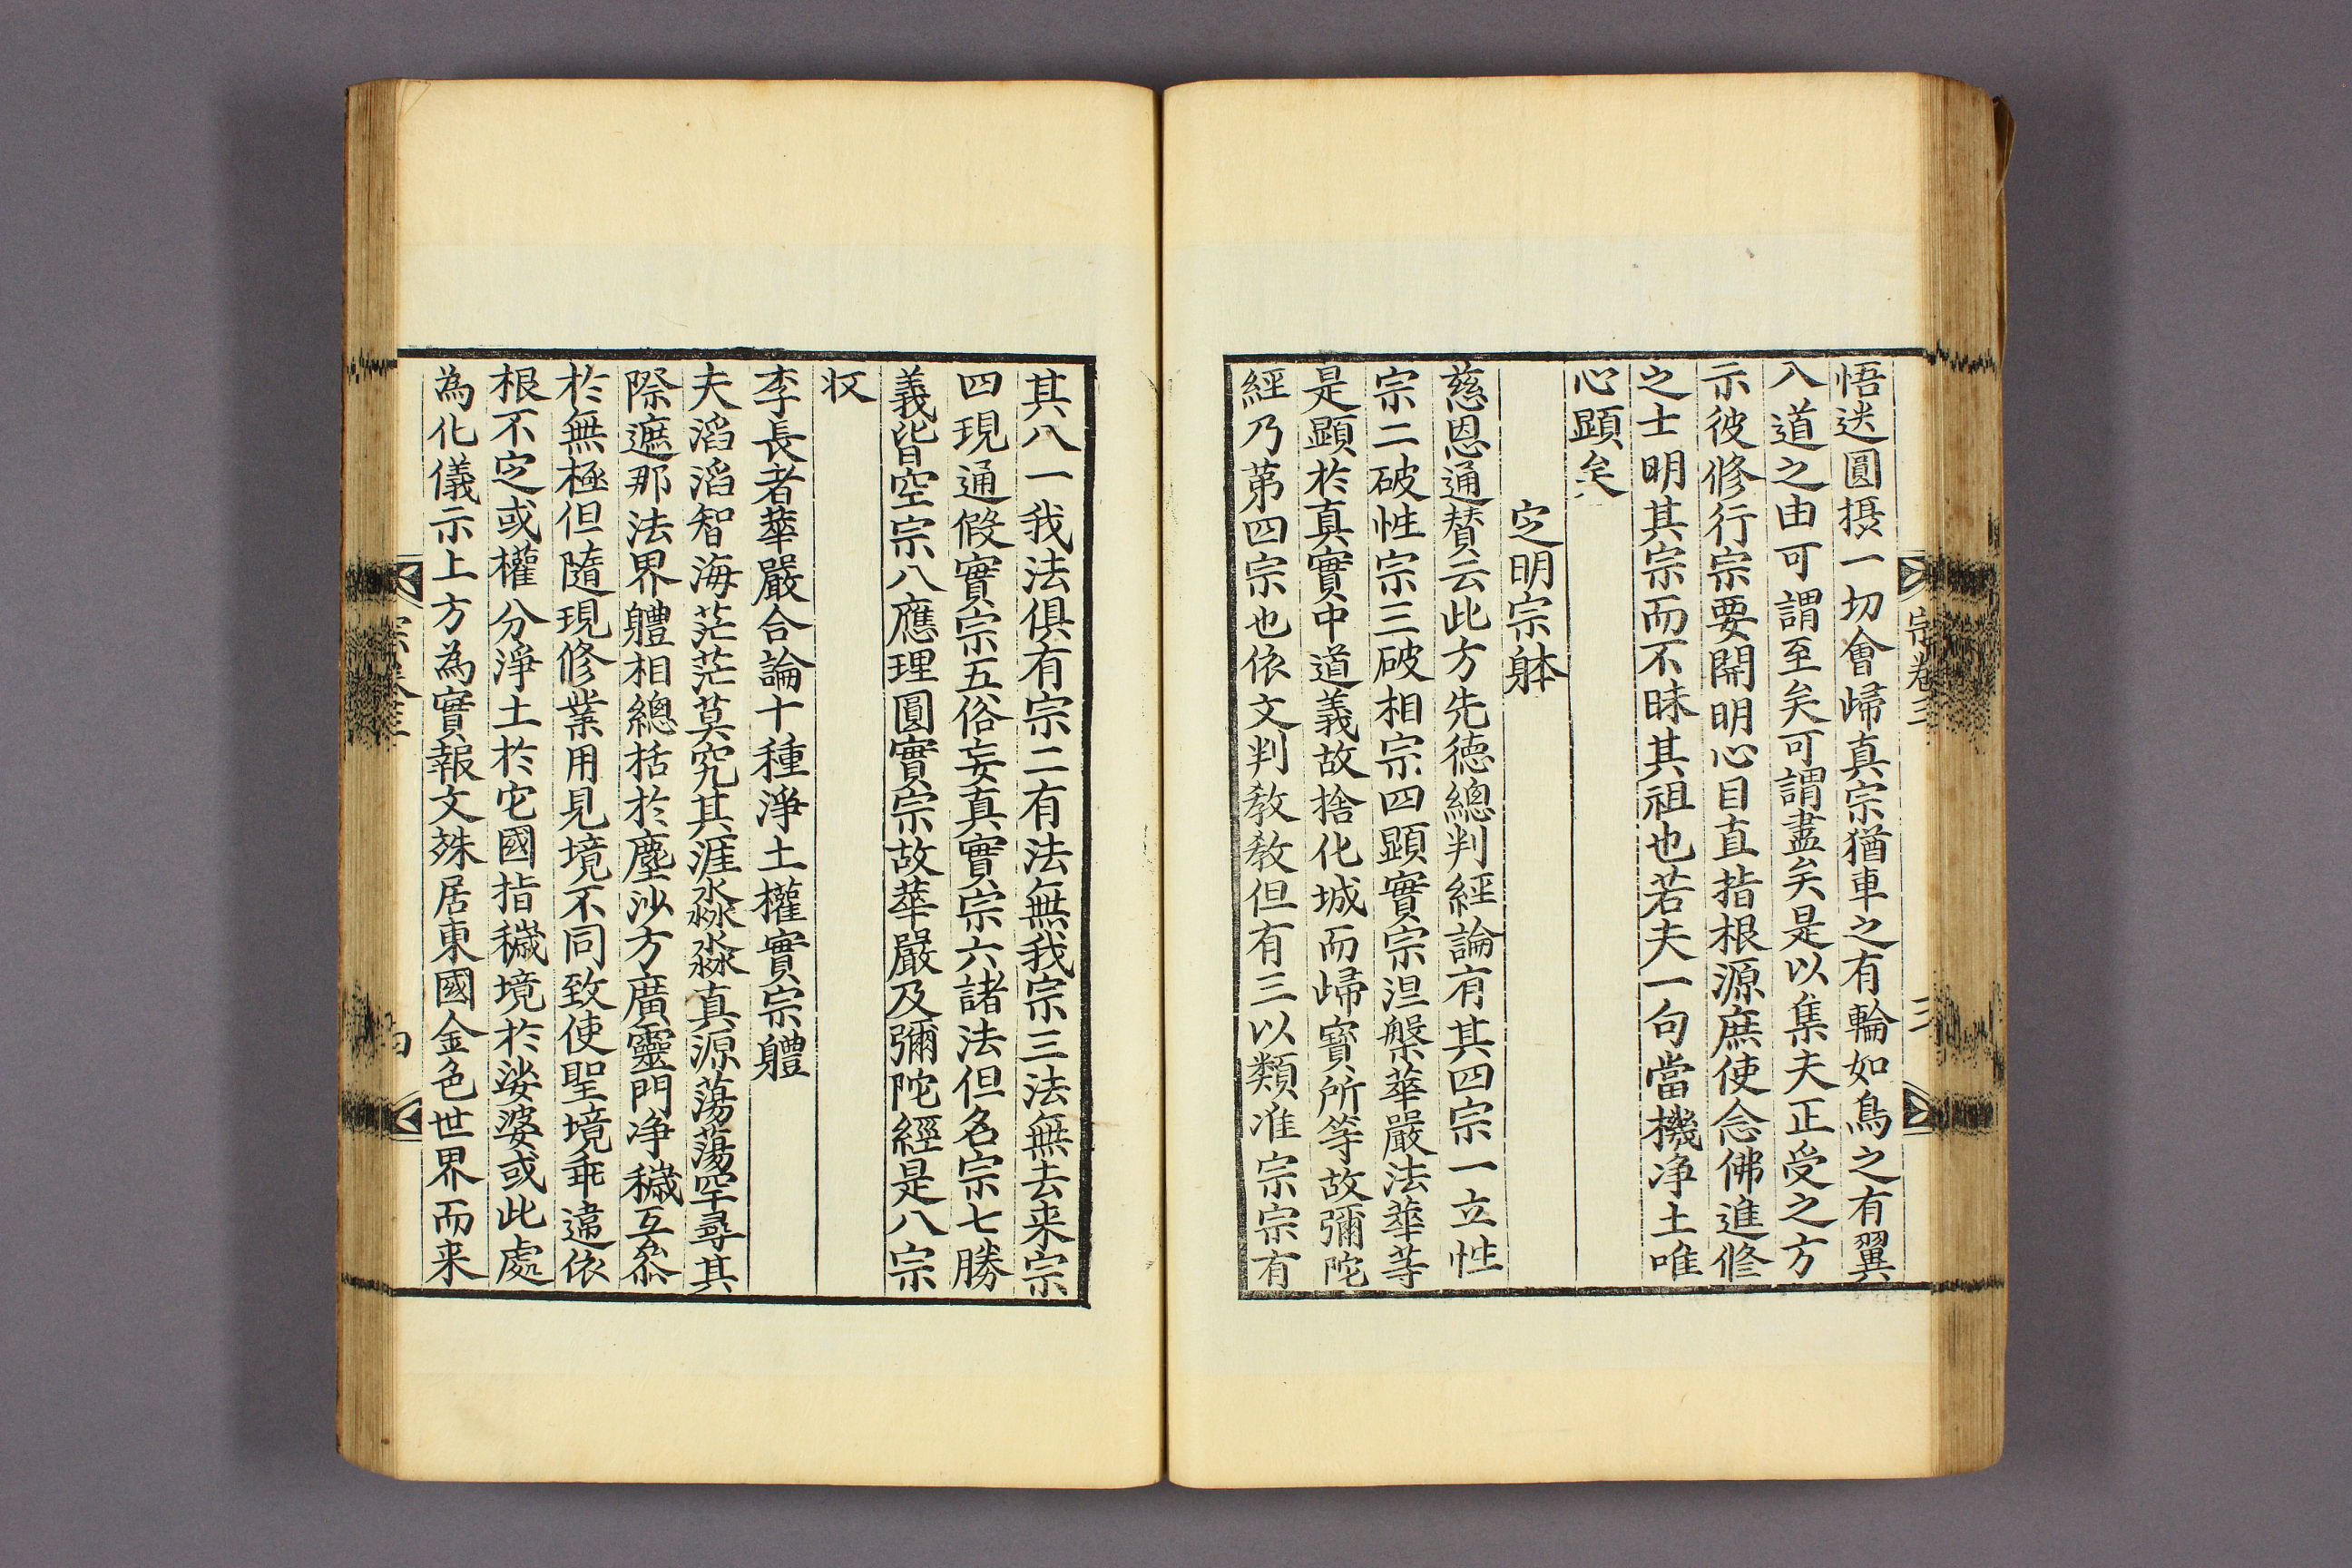 悟迷圓摂一切會歸真宗猶車之有輪如鳥之有翼
八道之由可謂至矣可謂盡矣是以集夫正受之方
示彼修行宗要開明心目直指根源庶使念佛進修
之士明其宗而不昧其祖也若夫一句當機净土唯
心顕矣
定明宗躰
慈恩通賛云此方先德總判經論有其四宗一立性
宗二破性宗三破相宗四顕實宗涅槃華嚴法華等
是顕於真實中道義故捨化城而歸寳所等故彌陀
經乃苐四宗也依文判教教但有三以類准宗宗有
其八一我法俱有宗二有法無我宗三法無去来宗
四現通假實宗五俗妄真實宗六諸法但名宗七勝
義皆空宗八應理圓實宗故華嚴及彌陀經是八宗
收
李長者華嚴合論十種淨土權實宗軆
夫滔滔智海茫茫莫究其涯淼淼真源蕩蕩罕尋其
際遮那法界軆相總括於塵沙方廣靈門净穢互叅
於無極但隨現修業用見境不同致使聖境乖違依
根不定或權分淨土於它國指穢境於娑婆或此處
為化儀示上方為實報文殊居東國金色世界而来
宗卷三
三